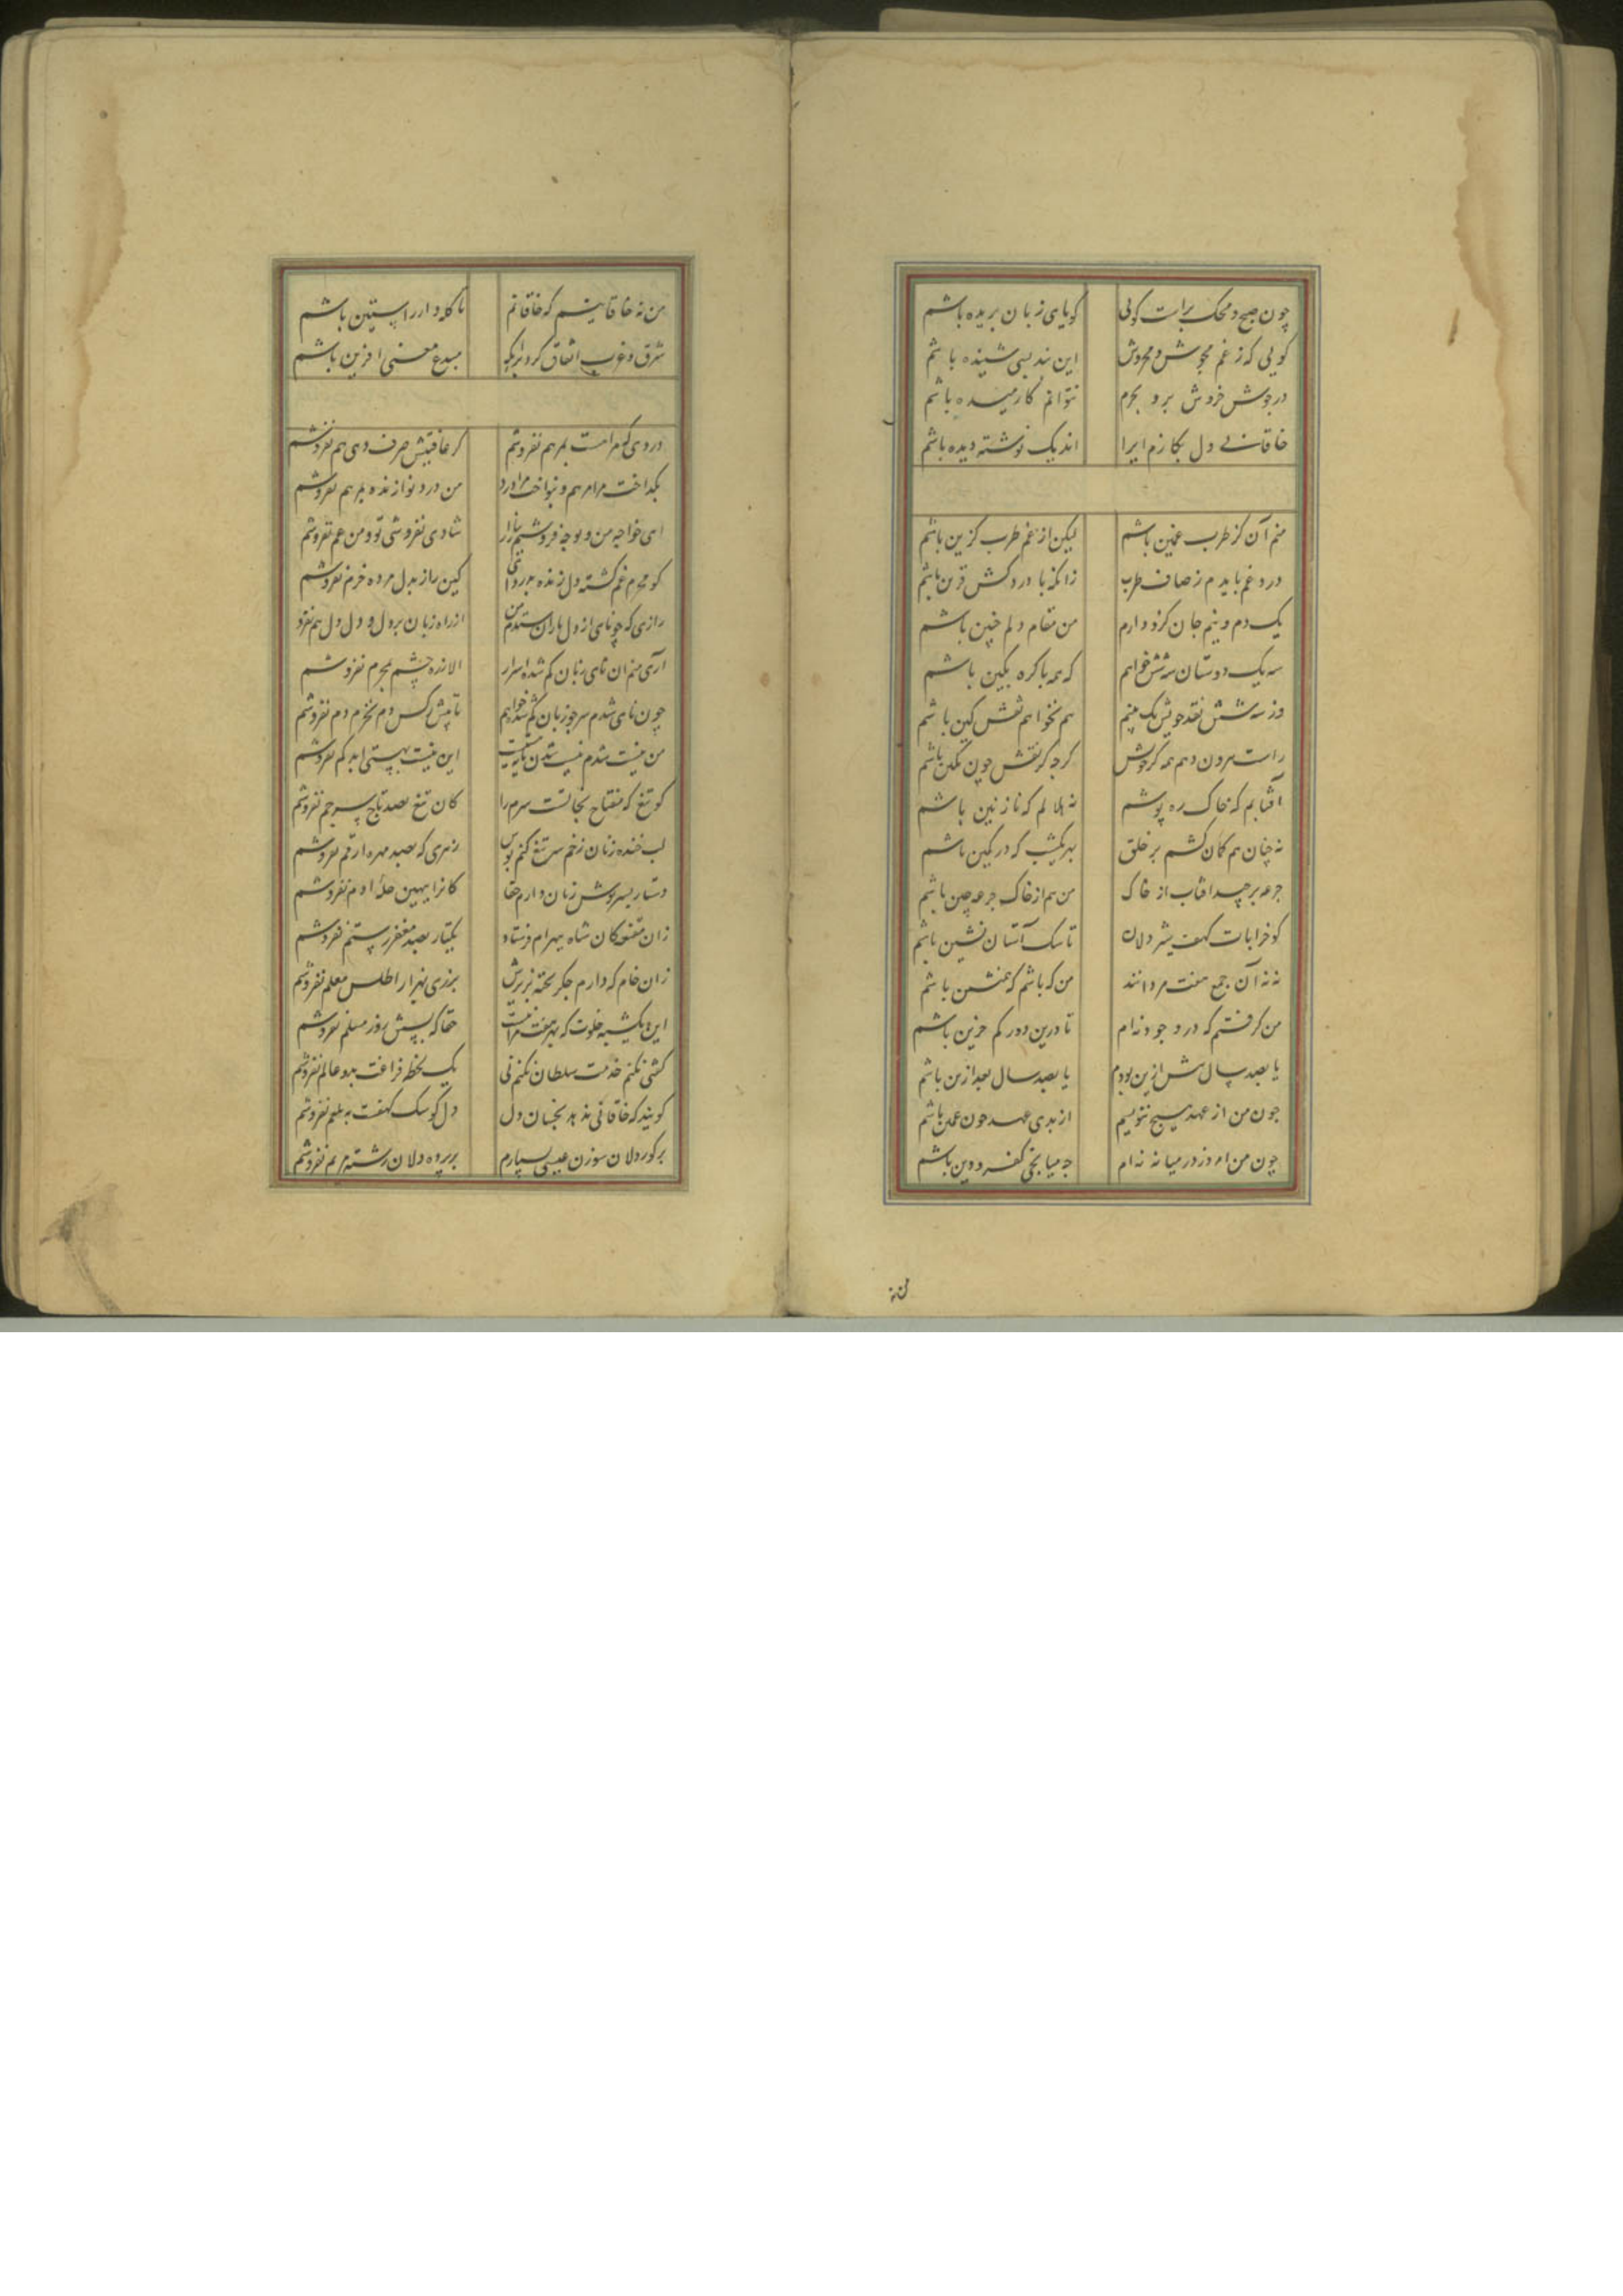 چون صبح و محک براست کوئی کویای زبان بریده باشم
کویی که ز غم مجوش و مخروش این پند بسی شنیده باشم
در جوش و خروش برو بحرم نتوانم کارمیده باشم
خاقانی دل بکار زم ایرا اندیک نوشته دیده باشم
منم آن کز طرب غمین باشم لیکن از غم طرب کزین باشم
درد غم بایدم ز صاف طرب زانکه با دردکش قرین باشم
یک دم و نیم جان کرو دارم من مقام دلم چنین باشم
سه یک دوستان سه شش خواهم که همه با کره بکین باشم
وز سه شش نقد خویش یک بینم هم نخواهم نقش کین باشم
راست بیرون دهم همه کژ خویش کرچه کژ نقش چون نکین باشم
آفتابم که خاک ره پوشم نه هلالم که نازنین باشم
نه چنان هم کمان کشم بر خلق بهر یک شب که در کمین باشم
جرعه برچید آفتاب از خاک من هم از خاک جرعه چین باشم
کو خرابات کهف شیر دلان تا سک آستان نشین باشم
نه نه آن جمع هفت مردانند من که باشم که همنشین باشم
من کرفتم که در وجود نه ام تا درین دور کم حزین باشم
یا بصد سال پیش ازین بودم یا بصد سال بعد ازین باشم
چون من از عهد هیچ ننویسم از بدی عهد چون غمین باشم
چون من امروز در میانه نه ام چه میانجی کفر و دین باشم
من نه خاقانیم که خاقانم تا کله دار راستین باشم
شرق و غرب اتفاق کرد برآنکه مبدع معنی آفرین باشم
دردی که مراست بمرهم نفروشم کر عافیتش صرف دهی هم نفروشم
بکداخت مرا مرهم و بنواخت مرا درد من درد نوازنده بمرهم نفروشم
ای خواجه من و تو چه فروشیم ببازار شادی نفروشی تو و من غم نفروشم
کو محرم غم کشته دل زنده بدردی کین راز بدل مرده خرم نفروشم
رازی که چو نای از دل یاران ستدم من از راه زبان بر دل و دل دل هم نفرو
آری منم آن نای زبان کم شده اسرار الا ز ره چشم بمحرم نفروشم
چون نای شدم سر چو زبان کم شده خواهم تا پیش کس دم نخرم دم نفروشم
من نیست شدم نیست شدن مایه هستیست این نیست بهستی ابد کم نفروشم
کو تیغ که مفتاح نجاتست سرم را کان تیغ بصد تاج سر جم نفروشم
لب خنده زنان زخم سر تیغ کنم بوس زهری که بصد مهره ارقم نفروشم
دستار بسرپوش زنان دارم حقا کانرا ببهین حله آدم نفروشم
زان مقنعه کان شاه بهرام فرستاد یکتار بصد مغفر رستم نفروشم
زان خام که دارم جکر پخته بزیرش برزی بهزار اطلس معلم نفروشم
این یکشبه خلوت که بهر هفته مراست حقا که بشش روز مسلم نفروشم
کشی نکنم خدمت سلطان نکنم نی یک لحظه فراغت بدو عالم نفروشم
کویند که خاقانی ندهد بخسان دل دل کو سک کهفست به بلعم نفروشم
بر کور دلان سوزن عیسی نسپارم بر پرده دلان رشته مریم نفروشم